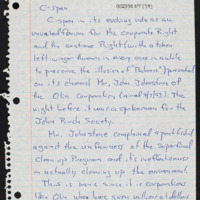 C-span
C-span in its evolving role as an
unvarnished forum for the corporate Right
and the extreme Right (with a token
left-winger thrown in every once in awhile
to preserve the illusion of "Balance") presented
on its channel Mr. John Johnstone of
the Olin Corporation (and 9/1/93). The
night before it was a spokesman for the
John Birch Society.
Mr. Johnstone complained
against the unfairness of the Superfund
clean up Program and its ineffectiveness
in actually cleaning up the environment.
This is ironic since it is corporations
like Olin who have given